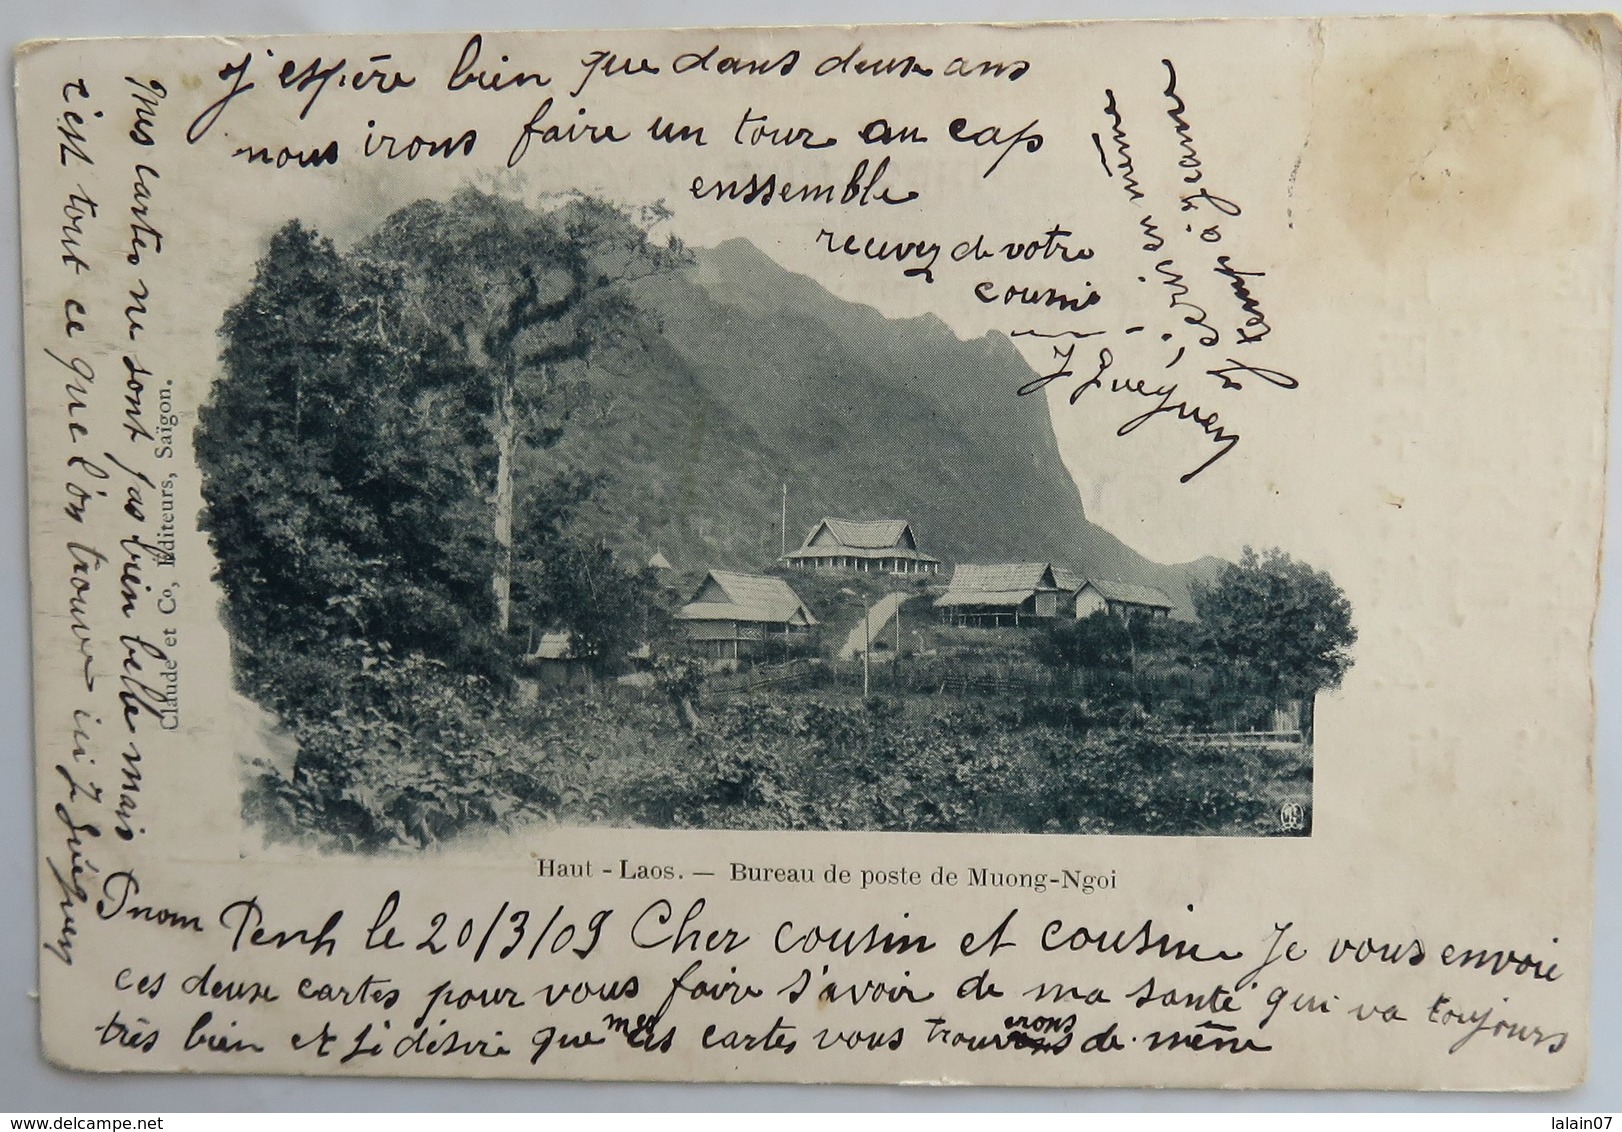 Haut - Laos. — Bureau de poste de Muong-Ngoi
Claude et Co, Éditeurs, Saïgon.
Pnom Penh le 20/3/09 Cher cousin et cousine Je vous envoie
ces deuse cartes pour vous faire s'avoir de ma santé qui va toujours
très bien et Je désire que mes cartes vous trouverons de même
Mes cartes ne sont pas bien belle mais
c'est tout ce que l'on trouve ici J Guéguen
J'espère bien que dans deuse ans
nous irons faire un tour au cap
enssemble
recevez de votre
cousin
J Gueguen
écris en même
temps à Jeanne
lalain07